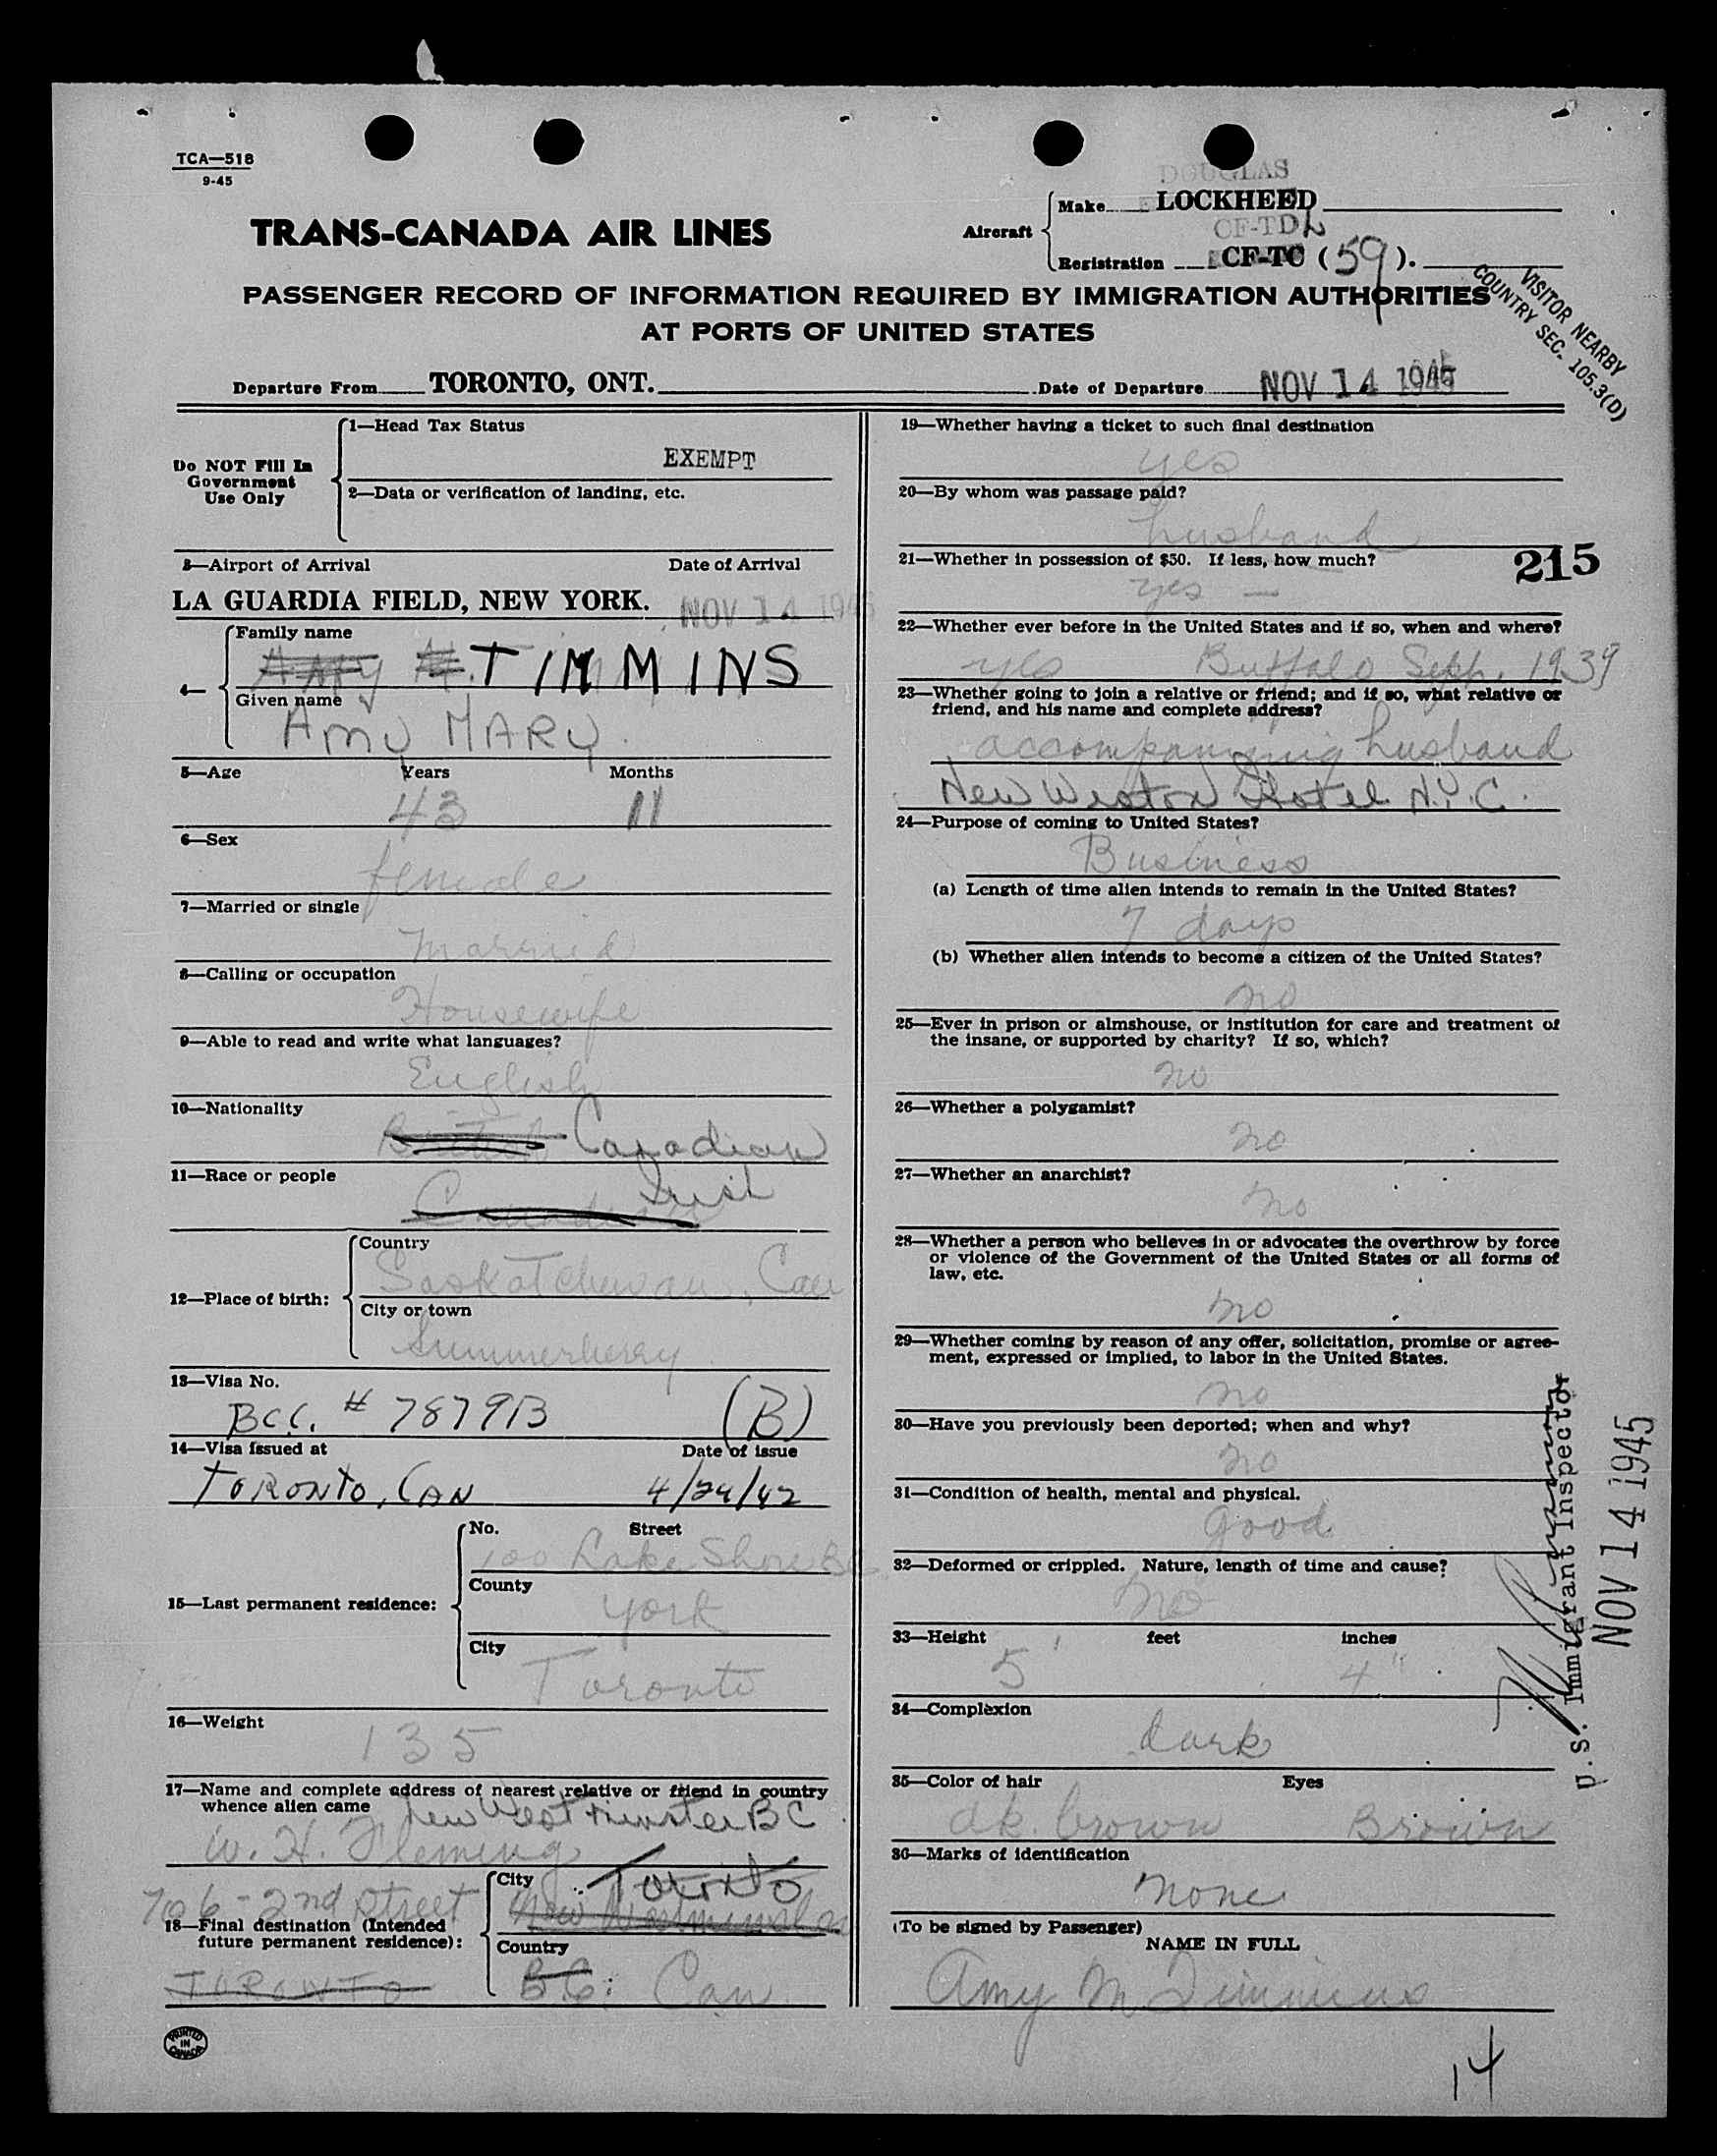 TCA—518
9-45
DOUGLAS
Aircraft
Make LOCKHEED
CF-TDL
Registration CF-TC (59).
TRANS-CANADA AIR LINES
PASSENGER RECORD OF INFORMATION REQUIRED BY IMMIGRATION AUTHORITIES
AT PORTS OF UNITED STATES
VISITOR NEARBY
COUNTRY SEC. 105.3(D)
Departure From TORONTO, ONT. Date of Departure NOV 14 1945
Do NOT Fill In
Government
Use Only
1—Head Tax Status
EXEMPT
2—Data or verification of landing, etc.
3—Airport of Arrival Date of Arrival
LA GUARDIA FIELD, NEW YORK. NOV 14 1945
4—
Family name
Amy M. TIMMINS
Given name
Amy MARY
5—Age Years Months
43 11
6—Sex
female
7—Married or single
Married
8—Calling or occupation
Housewife
9—Able to read and write what languages?
English
10—Nationality
British Canadian
11—Race or people
Canadian Irish
12—Place of birth:
Country
Saskatchewan, Can
City or town
Summerberry
13—Visa No.
BCC. # 7879B (B)
14—Visa issued at Date of issue
TORONTO, CAN 4/24/42
15—Last permanent residence:
No. Street
100 Lake Shore
County
York
City
Toronto
16—Weight
135
17—Name and complete address of nearest relative or friend in country
whence alien came
New Westminster BC
W. H. Fleming
706-2nd Street
18—Final destination (Intended
future permanent residence):
TORONTO
City
Toronto
New Westminster
Country
B.C. Can.
PRINTED
IN
CANADA
19—Whether having a ticket to such final destination
yes
20—By whom was passage paid?
husband
21—Whether in possession of $50. If less, how much?
yes —
215
22—Whether ever before in the United States and if so, when and where?
yes Buffalo Sept. 1939
23—Whether going to join a relative or friend; and if so, what relative or
friend, and his name and complete address?
accompanying husband
New Weston Hotel N.Y.C.
24—Purpose of coming to United States?
Business
(a) Length of time alien intends to remain in the United States?
7 days
(b) Whether alien intends to become a citizen of the United States?
no
25—Ever in prison or almshouse, or institution for care and treatment of
the insane, or supported by charity? If so, which?
no
26—Whether a polygamist?
no
27—Whether an anarchist?
no
28—Whether a person who believes in or advocates the overthrow by force
or violence of the Government of the United States or all forms of
law, etc.
no
29—Whether coming by reason of any offer, solicitation, promise or agree-
ment, expressed or implied, to labor in the United States.
no
30—Have you previously been deported; when and why?
no
31—Condition of health, mental and physical.
good
32—Deformed or crippled. Nature, length of time and cause?
no
33—Height feet inches
5' 4"
34—Complexion
dark
35—Color of hair Eyes
dk. brown Brown
36—Marks of identification
none
(To be signed by Passenger)
NAME IN FULL
Amy M Timmins
U.S. Immigrant Inspector
NOV 14 1945
14